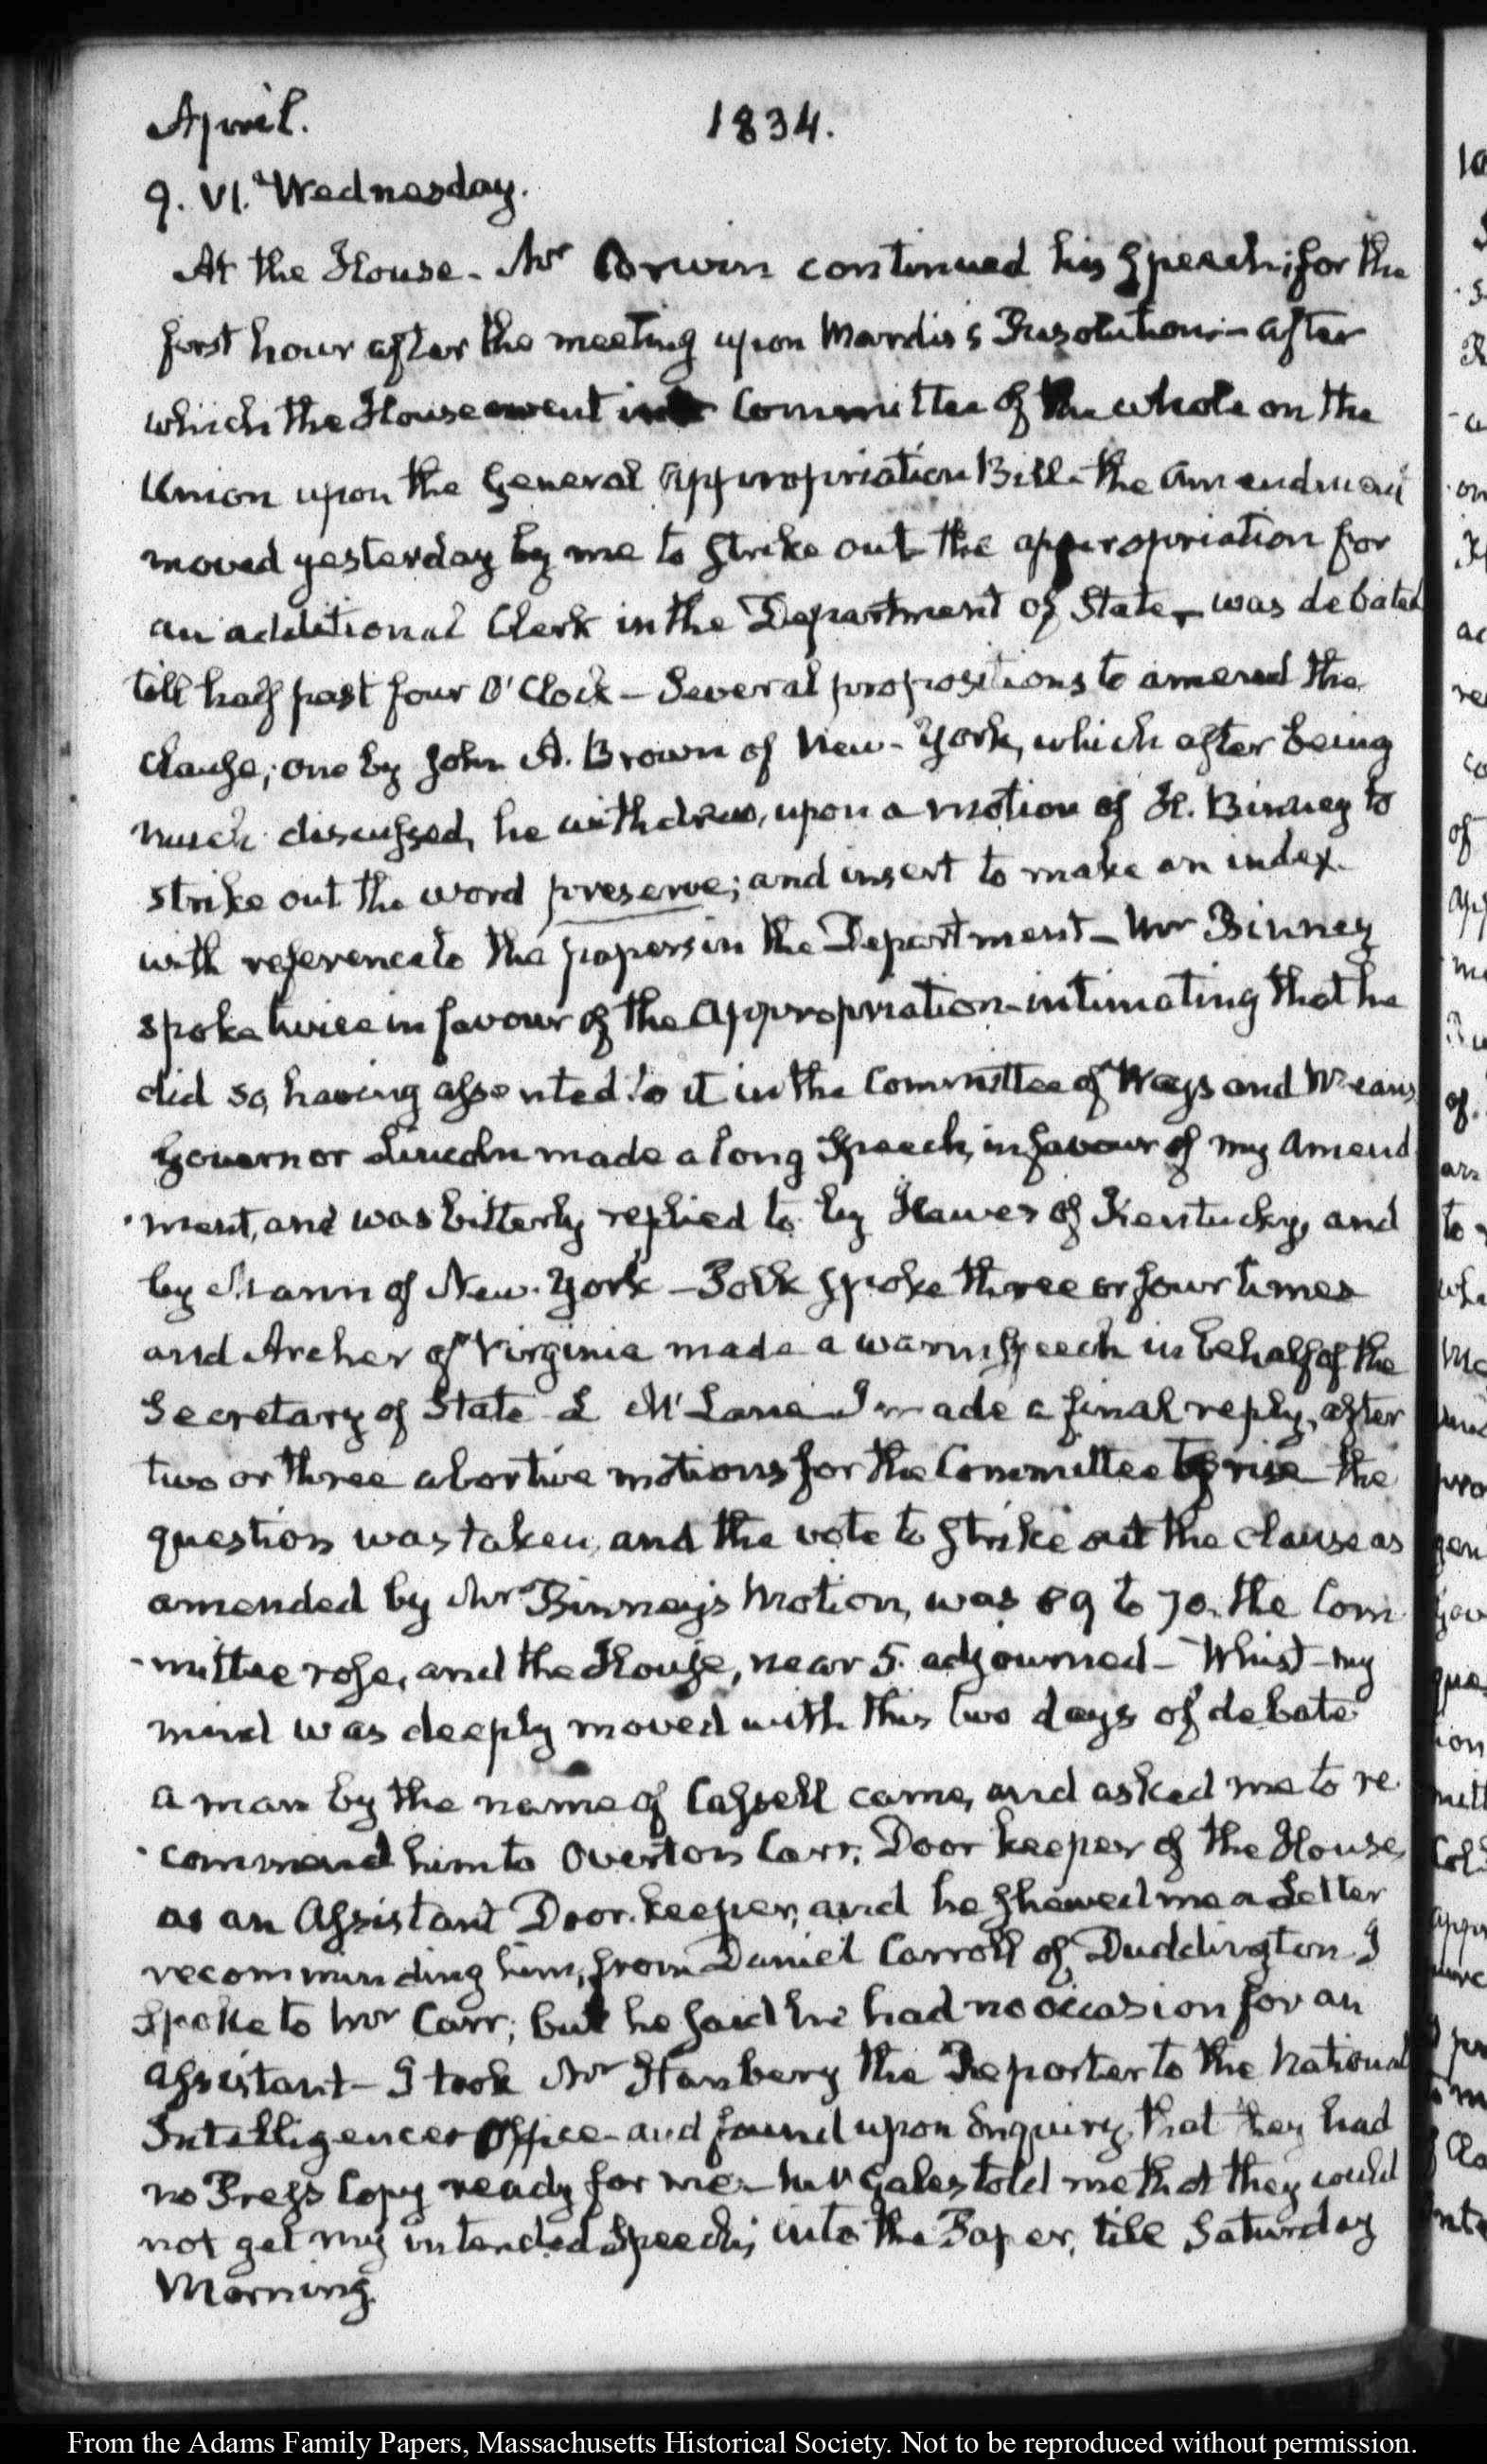 April. 1834.
9. VI. Wednesday.
At the House. Mr Corwin continued his Speech; for the
first hour after the meeting upon Mardis's Resolution – after
which the House went into Committee of the whole on the
Union upon the General Appropriation Bill – the amendment
moved yesterday by me to strike out the appropriation for
an additional Clerk in the Department of State – was debated
till half past four O'Clock – Several propositions to amend the
clause; one by John A. Brown of New-York, which after being
much discussed, he withdrew, upon a motion of H. Binney to
strike out the word preserve; and insert to make an index
with reference to the papers in the Department – Mr Binney
spoke twice in favour of the Appropriation – intimating that he
did so, having assented to it in the Committee of Ways and Means
Governor Lincoln made a long Speech, in favour of my amend
-ment, and was bitterly replied to by Hawes of Kentucky, and
by Mann of New-York – Polk spoke three or four times
and Archer of Virginia made a warm speech in behalf of the
Secretary of State L McLane I made a final reply, after
two or three abortive motions for the Committee to rise the
question was taken, and the vote to strike out the clause as
amended by Mr Binney's Motion, was 69 to 70. the Com
-mittee rose, and the House, near 5. adjourned – Whist – my
mind was deeply moved with this two days of debate
A man by the name of Cassell came, and asked me to re
-commend him to Overton Carr, Door keeper of the House,
as an Assistant Door-keeper, and he shewed me a Letter
recommending him, from Daniel Carroll of Duddington I
spoke to Mr Carr; but he said he had no occasion for an
assistant – I took Mr Stanbery the Reporter to the National
Intelligencer Office – and found upon enquiry, that they had
no Press Copy ready for me – Mr Gales told me that they could
not get my intended Speech, into the Paper, till Saturday
Morning.
From the Adams Family Papers, Massachusetts Historical Society. Not to be reproduced without permission.